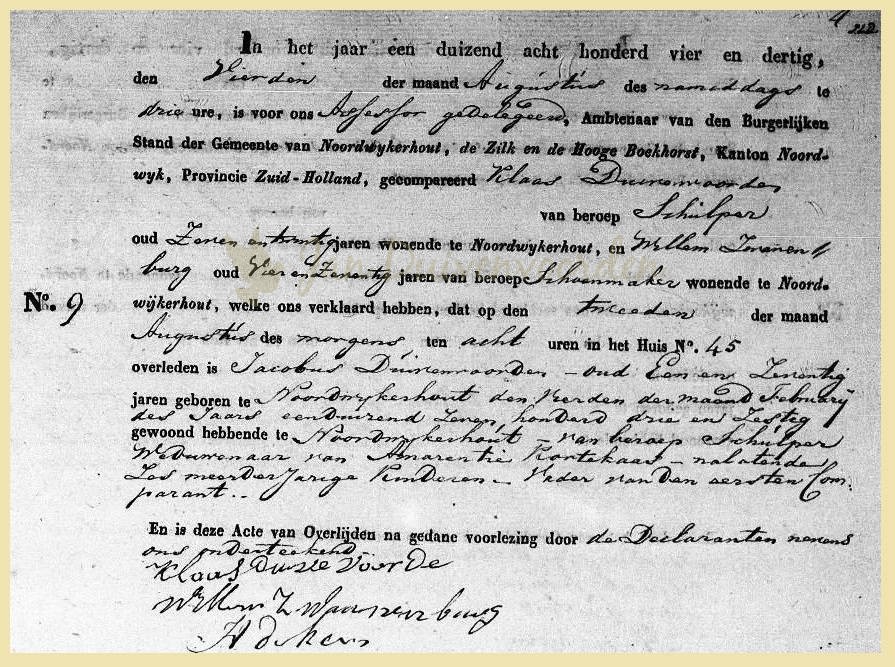 4 212
In het jaar een duizend acht honderd vier en dertig,
den Vierden der maand Augustus des namiddags te
drie ure, is voor ons Assessor gedelegeerd, Ambtenaar van den Burgerlijken
Stand der Gemeente van Noordwykerhout, de Zilk en de Hooge Boekhorst, Kanton Noord-
wyk, Provincie Zuid-Holland, gecompareerd Klaas Duivenvoorden
van beroep Schulper
oud Zeven en twintig jaren wonende te Noordwykerhout, en Willem
burg oud Vier en Zeventig jaren van beroep Schoenmaker wonende te Noord-
No. 9 wijkerhout, welke ons verklaard hebben, dat op den tweeden der maand
Augustus des morgens ten acht uren in het Huis No. 45
overleden is Jacobus Duivenvoorden - oud Een en Zeventig
jaren geboren te Noordwykerhout den Vierden der maand Februarij
des Jaars eenduizend Zeven honderd drie en Zestig
gewoond hebbende te Noordwykerhout - van beroep Schulper
Weduwenaar van Amarentie Kortekaas - nalatende
Zes meerderjarige Kinderen - Vader van den eersten Com-
parant..
En is deze Acte van Overlijden na gedane voorlezing door de Declaranten nevens
ons onderteekend
Klaas Duive Voorde
Willem